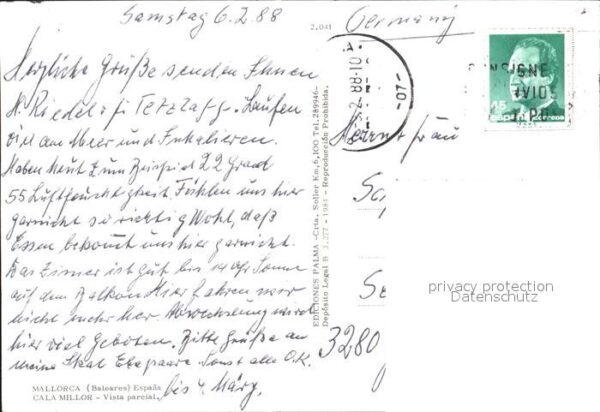 Samstag 6.2.88
Herzliche Grüße senden Ihnen
H. Riedel + fr Tetzlaff. Laufen
viel am Meer und Inhalieren.
Haben Heut zum Beispiel 22 Grad
55 Luftfeuchtigkeit. Fühlen uns hier
garnicht so richtig Wohl, daß
Essen bekommt uns hier garnicht.
Das Zimmer ist gut bis 14 Uhr Sonne
auf dem Balkon. Hier fahren wir
nicht mehr her. Abwechslung wird
hier viel Geboten. Bitte Grüße an
meine Skat Ehepaare. Sonst alle O.K.
bis 4. März.
MALLORCA (Baleares) España
CALA MILLOR - Vista parcial
EDICIONES PALMA -Crta. Soller Km, 6,100 Tel. 289946-
Depósito Legal B - 1984 - Reproducción Prohibida.
2.041
Germany
-07-
2-88-10
15
España
correos
Herrn + Frau
3280
privacy protection
Datenschutz